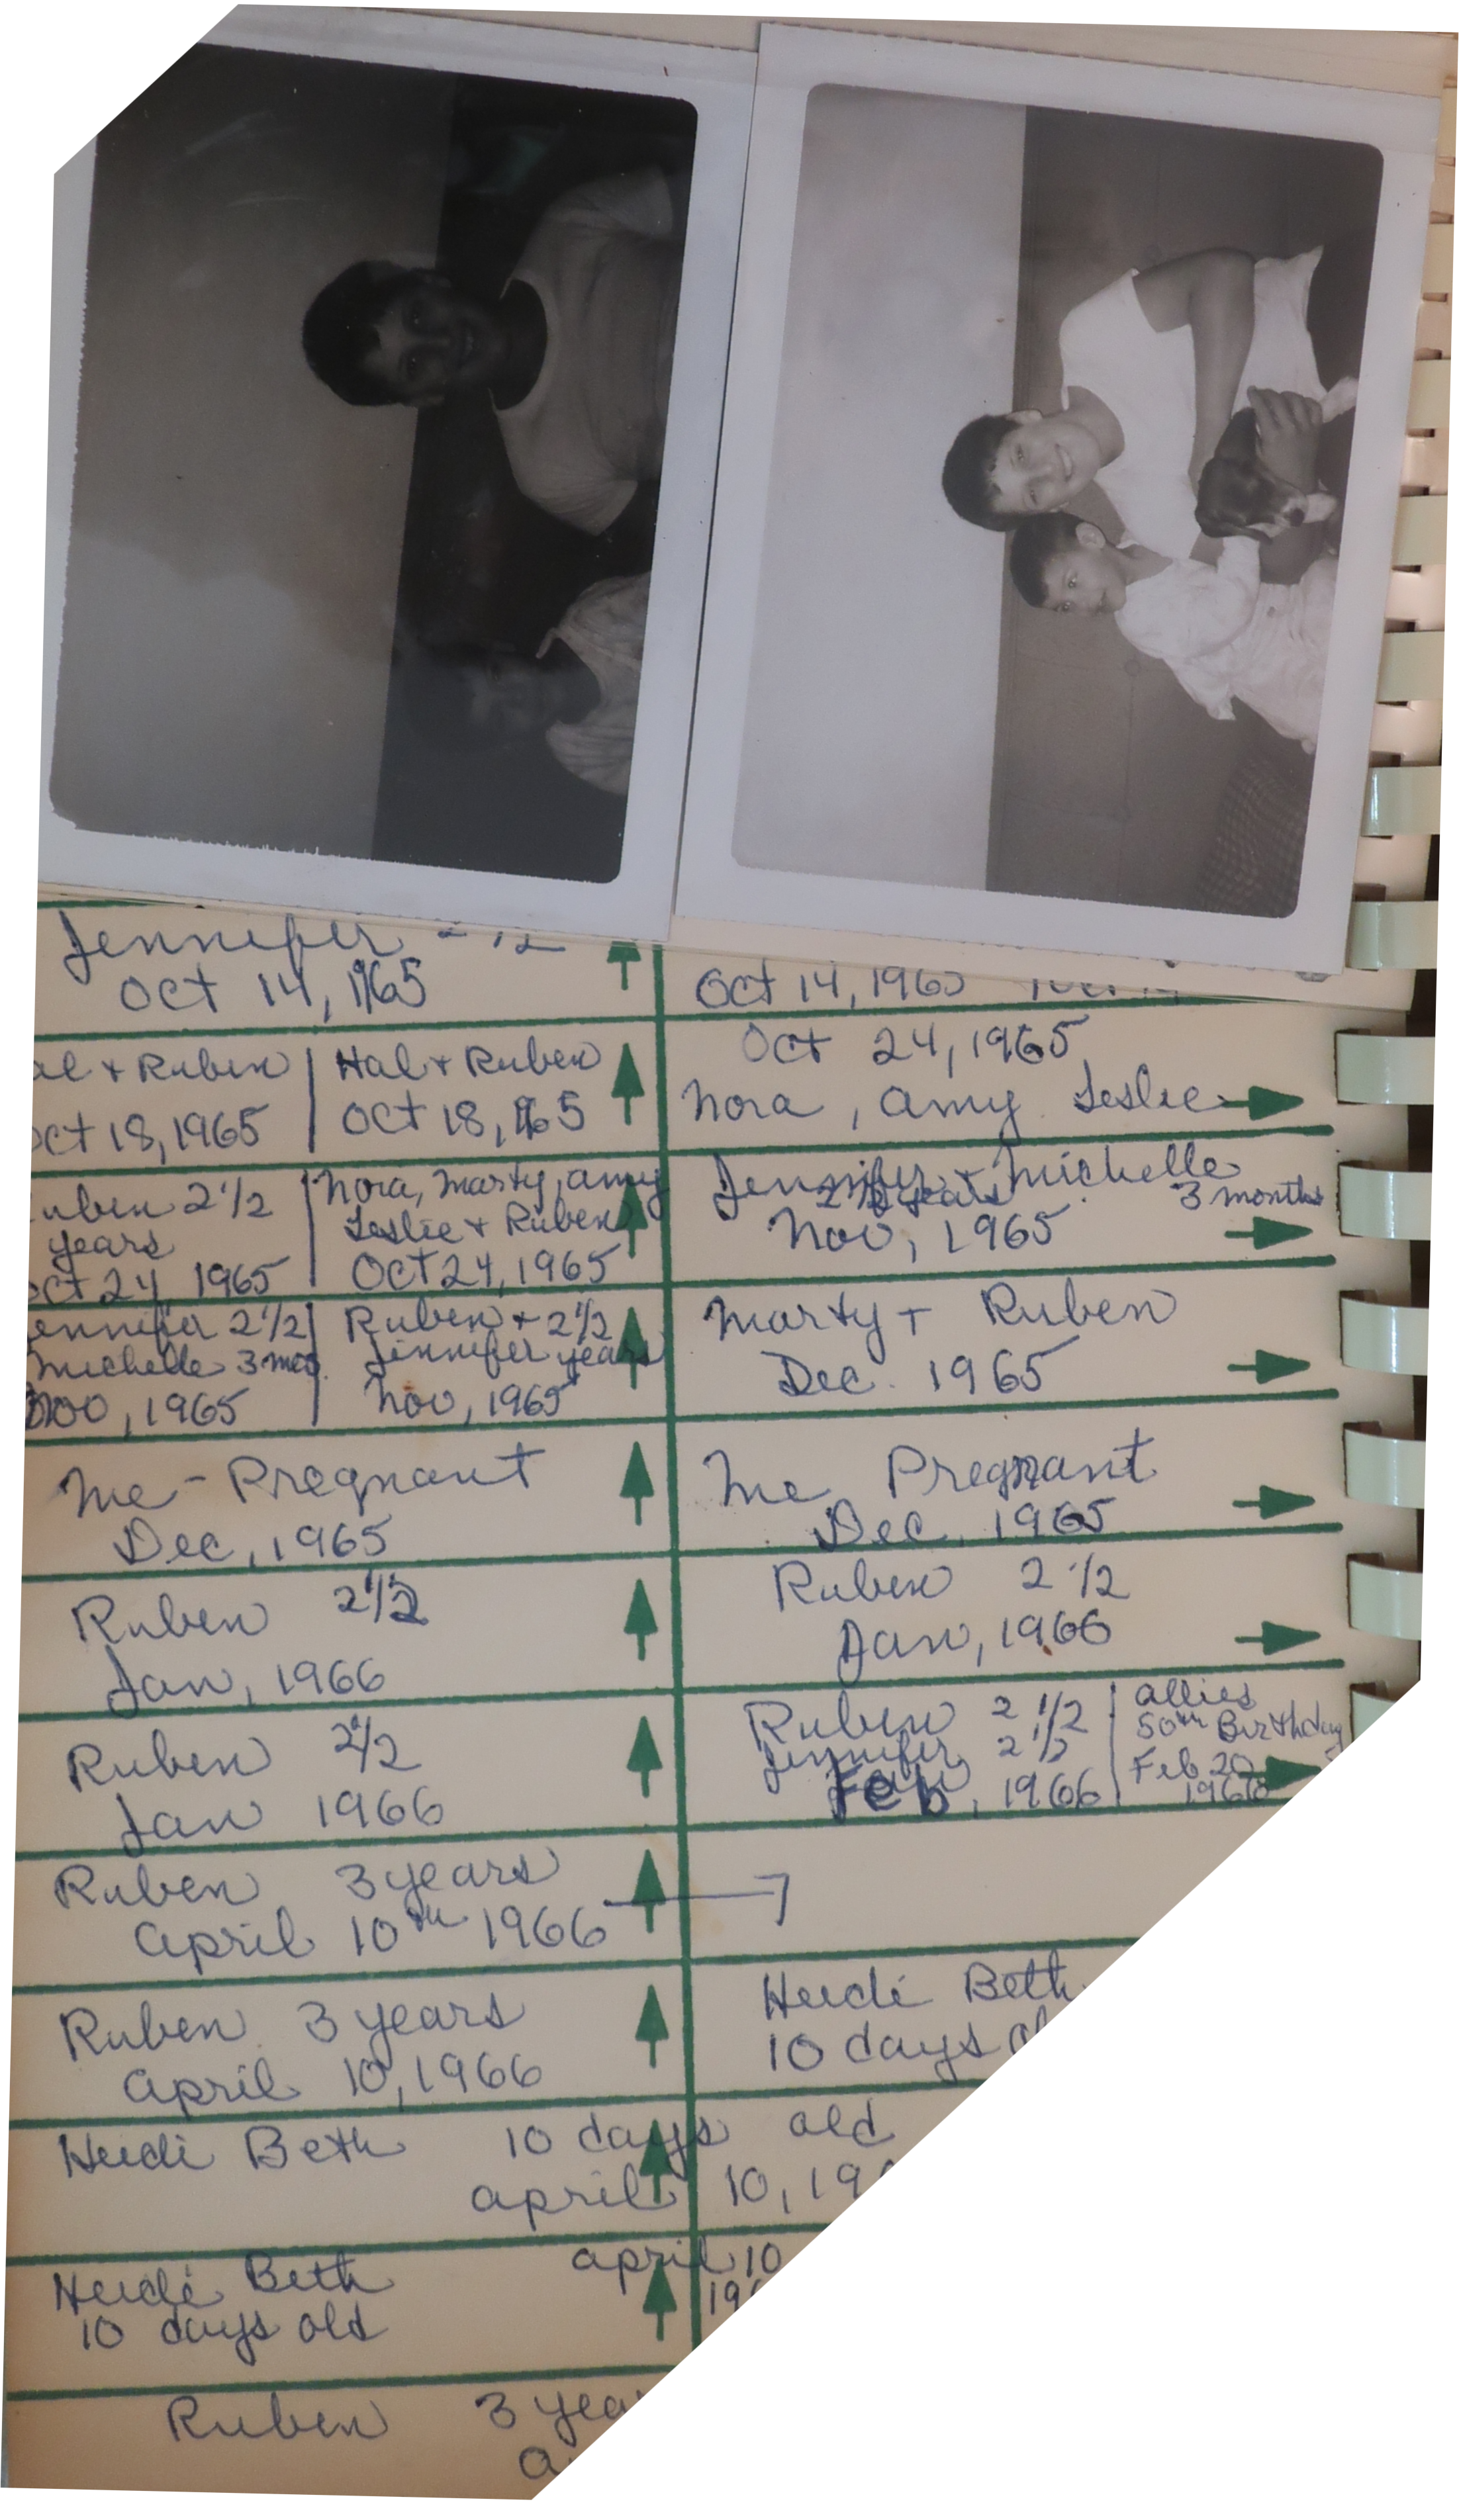 Jennifer 2 1/2
Oct 14, 1965
Oct 14, 1965
& Ruben
Oct 18, 1965
Hal & Ruben
Oct 18, 1965
Oct 24, 1965
Nora, Amy Leslie
Ruben 2 1/2
years
Oct 24, 1965
Nora, Marty, Amy
Leslie & Ruben
Oct 24, 1965
Jennifer & Michelle
2 1/2 years 3 months
Nov, 1965
Jennifer 2 1/2
Michelle 3 mos.
Nov, 1965
Ruben & 2 1/2
Jennifer years
Nov, 1965
Marty & Ruben
Dec. 1965
Me - Pregnant
Dec, 1965
Me Pregnant
Dec, 1965
Ruben 2 1/2
Jan, 1966
Ruben 2 1/2
Jan, 1966
Ruben 2 1/2
Jan 1966
Ruben 2 1/2
Jennifer 2 1/2
Feb, 1966
Allies
50th Birthday
Feb 20
1966
Ruben 3 years
April 10th 1966
Ruben 3 years
April 10, 1966
Heidi Beth
10 days
Heidi Beth 10 days old
April 10, 19
Heidi Beth April 10
10 days old 19
Ruben 3 year